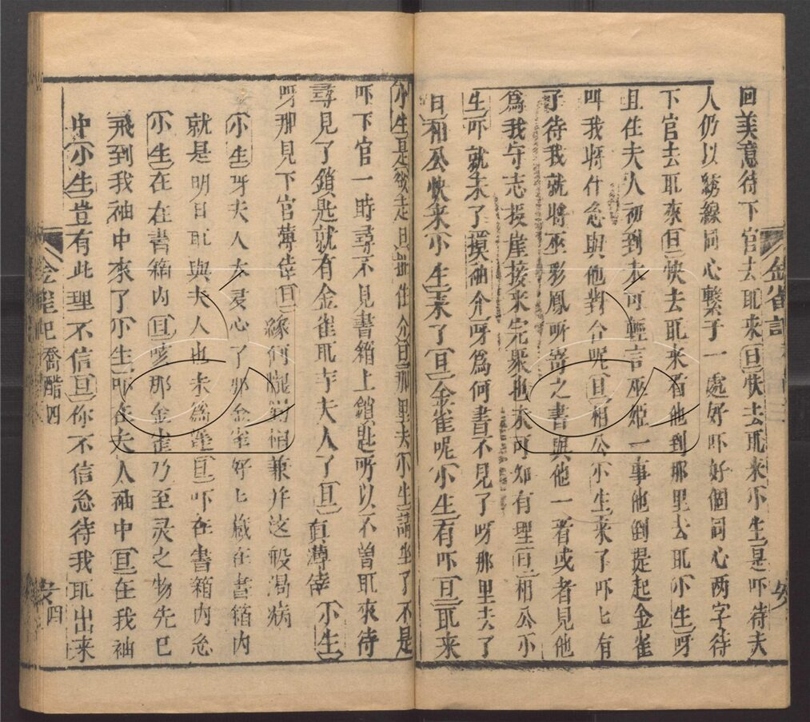 回美意待下官去取來旦快去取來小生是吓待夫
人仍以綵線同心繫于一處好吓好個同心两字待
下官去取來旦快去取來看他到那里去取小生呀
且住夫人初到未可輕言巫姬一事他倒提起金雀
叫我將什么與他對合呢旦相公小生來了吓吓有
了待我就將巫彩鳳所寄之書與他一看或者見他
爲我守志投崖接來完聚也未可知有理旦相公小
生吓就來了摸袖介呀爲何書不見了呀那里去了
旦相公快來小生來了旦金雀呢小生有吓旦取來
小生是欲走旦扯住介旦那里去小生請坐了不是
吓下官一時尋不見書箱上鎖匙所以不曾取來待
尋見了鎖匙就有金雀取与夫人了旦真薄倖小生
呀那見下官薄倖旦緣何 相兼并这般渴病
小生呀夫人太灵心了那金雀好好藏在書箱内
就是明日取與夫人也未爲遲旦吓在書箱内么
小生在在書箱内旦咳那金雀乃至灵之物先已
飛到我袖中來了小生吓在夫人袖中旦在我袖
中小生豈有此理不信旦你不信么待我取出来
金雀記
金雀記 喬醋 四